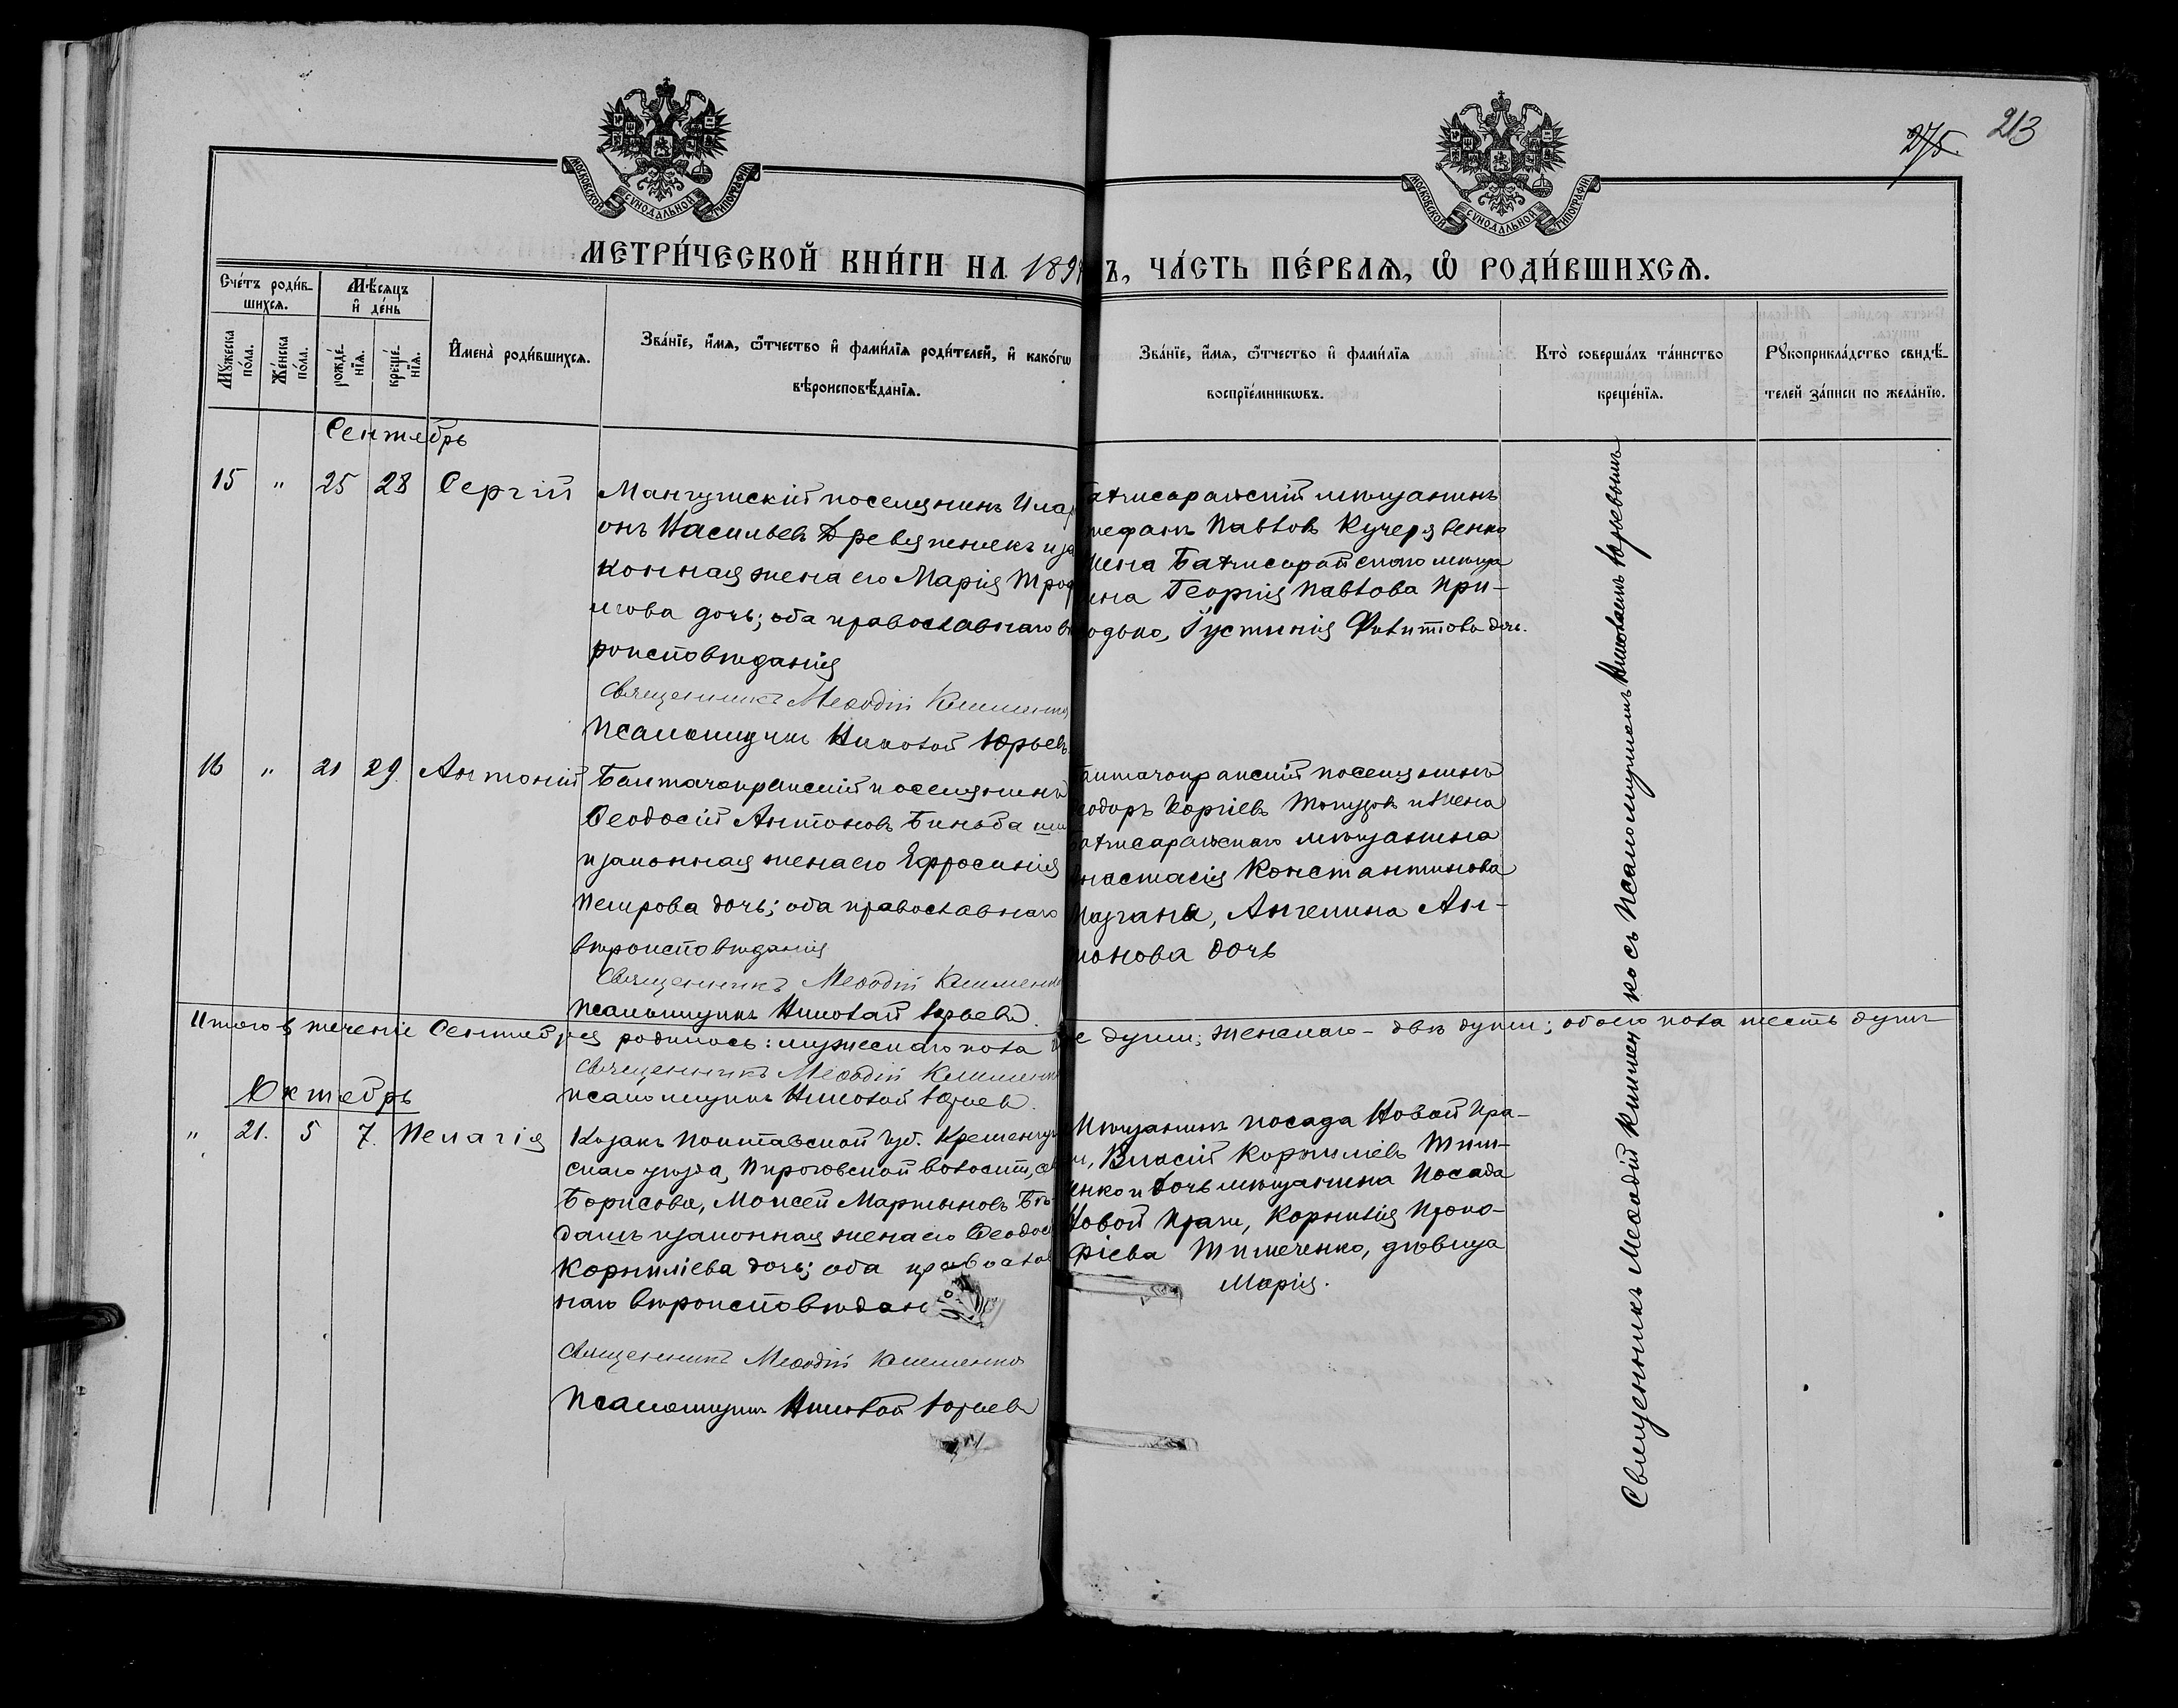 275 213
МОСКОВСКОЙ СѴНОДАЛЬНОЙ ТИПОГРАФІИ
МОСКОВСКОЙ СѴНОДАЛЬНОЙ ТИПОГРАФІИ
МЕТРИ́ЧЕСКОЙ КНИ́ГИ НА 189 Ъ, ЧА́СТЬ ПЕ́РВАѦ, Ѡ҆ РОДИ́ВШИХСѦ.
Сче́тъ роди́в-
шихся.
Мѣ́сяцъ
и҆ де́нь
Мꙋ́жеска по́ла.
Же́нска по́ла.
рожде́-
нїя.
креще́-
нїя.
И҆мена̀ роди́вшихся.
Зва́нїе, и҆́мя, ѻ҆́тчество и҆ фами́лїя роди́телей, и҆ како́гѡ
вѣроисповѣ́данїя.
Зва́нїе, и҆́мя, ѻ҆́тчество и҆ фами́лїя
воспрїе́мникѡвъ.
Кто̀ соверша́лъ та́инство
креще́нїя.
Рꙋкоприкла́дство свидѣ́-
телей за́писи по жела́нїю.
Сентябрь
15 " 25 28 Сергій
Мангушскій поселянинъ Ила
онъ Васильевъ и за
конная жена его Марія Троф
имова дочь; оба православнаго вѣ
роисповѣданія
Священникъ Меѳодій Клименко
Псаломщикъ Николай Юрьевъ
ахчисарайскій мѣщанинъ
тефанъ Павловъ Кучерявенко
жена Бахчисарайскаго мѣща
ина Георгія Павлова При-
одько, Іустинія Филиппова дочь.
16 " 21 29. Антоній
Балтачокракскій поселянинъ
Ѳеодосій Антоновъ
и законная жена его Ефросинія
Петрова дочь; оба православнаго
вѣроисповѣданія
Священникъ Меѳодій Клименко
Псаломщикъ Николай Юрьевъ
алтачокракскій поселянинъ
еодоръ и жена
ахчисарайскаго мѣщанина
настасія Константинова
Ангелина Ан-
тонова дочь
Итого въ теченіе Сентября родилось: мужескаго пола е души; женскаго – двѣ души; обоего пола шесть душъ
Священникъ Меѳодій Клименко
псаломщикъ Николай Юрьевъ.
Октябрь
" 21. 5 7. Пелагія
Козакъ Полтавской губ. Кременчуг
скаго уѣзда, Пироговской волости, се
Борисовки, Моисей Мартыновъ
и законная жена его Ѳеодос
Корниліева дочь; оба православ
наго вѣроисповѣдан
Священникъ Меѳодій Клименко
Псаломщикъ Николай Юрьевъ
Мѣщанинъ посада Новой Пра-
и, Власій Корниліевъ Тим-
енко и дочь мѣщанина Посада
Новой Праги, Корнилія Проко-
фіева Тимченко, дѣвица
Марія.
Священникъ Меѳодій Клименко съ Псаломщикомъ Николаемъ Юрьевымъ